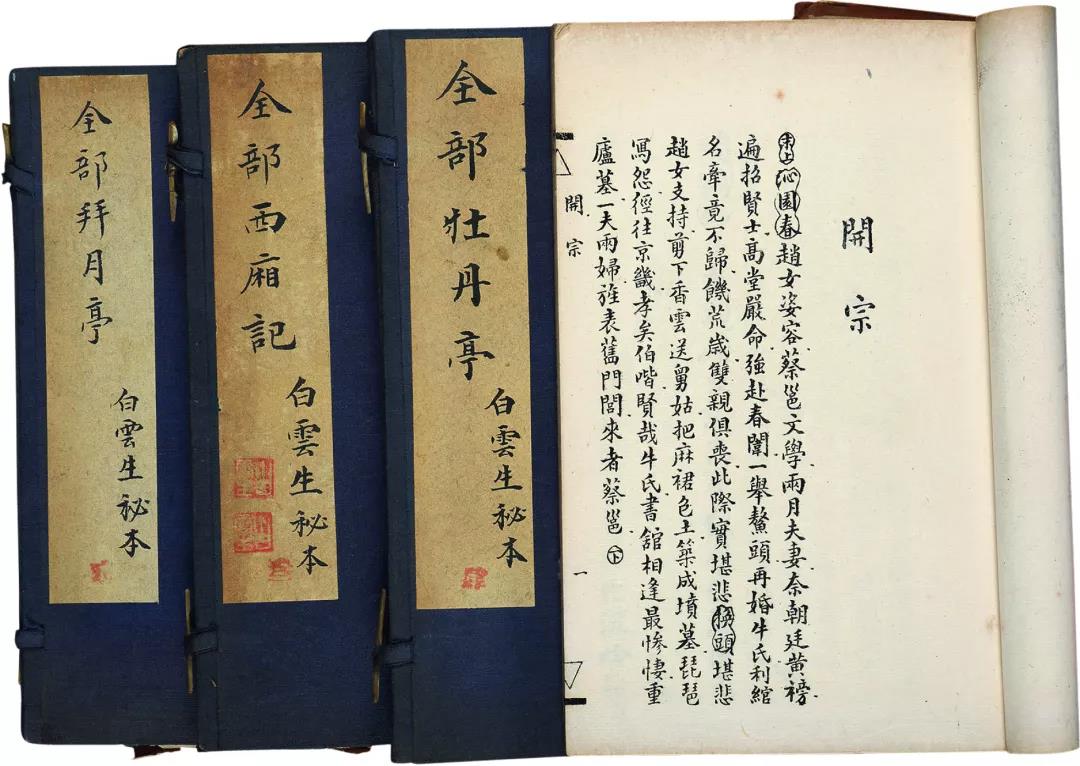 全部拜月亭
白雲生秘本
全部西廂記
白雲生秘本
全部牡丹亭
白雲生秘本
開宗
末上沁園春趙女姿容蔡邕文學兩月夫妻奈朝廷黄榜
遍招賢士高堂嚴命強赴春闈一舉鰲頭再婚牛氏利綰
名牽竟不歸饑荒歲雙親俱喪此際實堪悲換頭堪悲
趙女支持剪下香雲送舅姑把麻裙包土築成墳墓琵琶
寫怨徑往京畿孝矣伯喈賢哉牛氏書館相逢最慘悽重
廬墓一夫兩婦旌表舊門閭來者蔡邕下
開宗
一